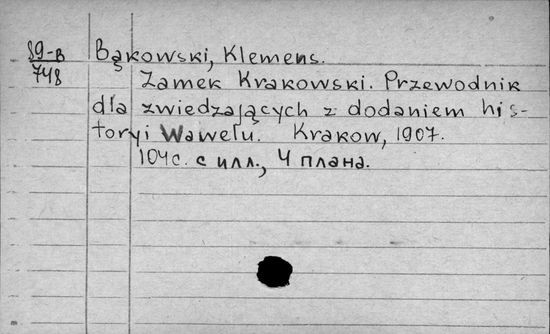 59-В
748
Bąkowski, Klemens.
Zamek Krakowski. Przewodnik
dla zwiedzających z dodaniem his-
toryi Wawelu. Krakow, 1907.
104 с. с илл., 4 плана.